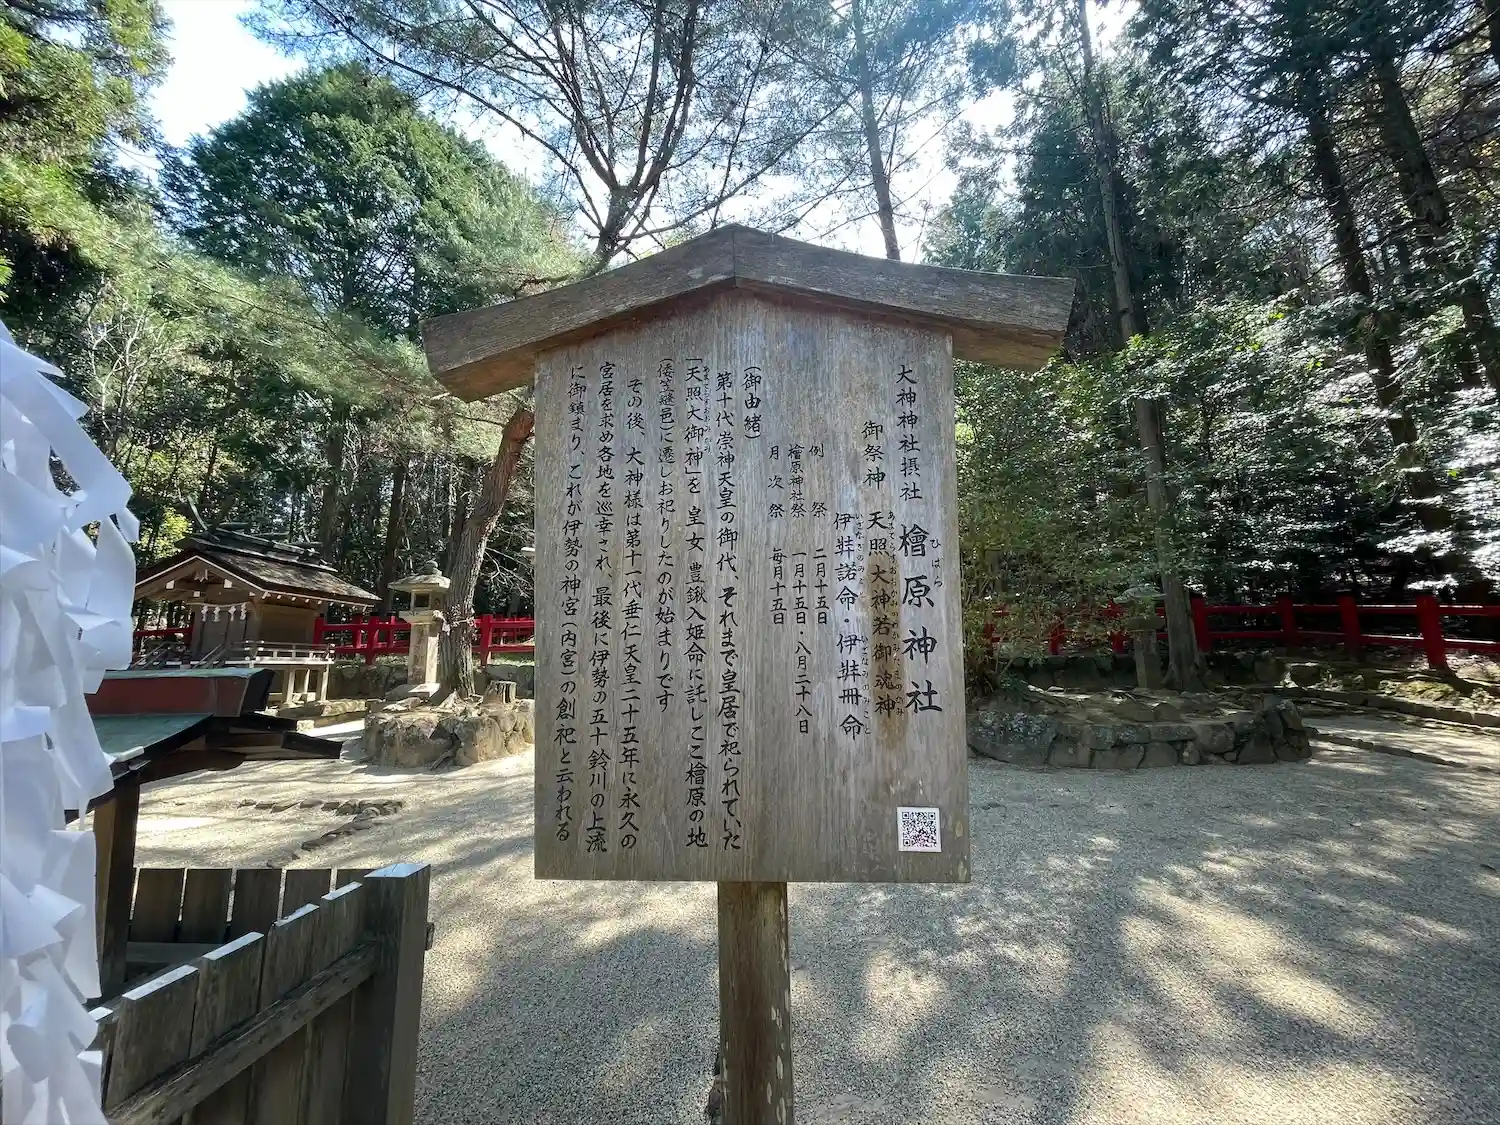 大神神社摂社 檜原神社
ひばら
御祭神 天照大神若御魂神
あまてらすおおかみのわかみたまのかみ
伊弉諾命・伊弉冊命
いざなぎのみこと いざなみのみこと
例祭 二月十五日
檜原神社祭 一月十五日・八月二十八日
月次祭 毎月十五日
(御由緒)
第十代崇神天皇の御代、それまで皇居で祀られていた
「天照大御神」を 皇女、豊鍬入姫命に託しここ檜原の地
あまてらすおおみかみ
(倭笠縫邑)に遷しお祀りしたのが始まりです
その後、大神様は第十一代垂仁天皇二十五年に永久の
宮居を求め各地を巡幸され、最後に伊勢の五十鈴川の上流
に御鎮まり、これが伊勢の神宮(内宮)の創祀と云われる